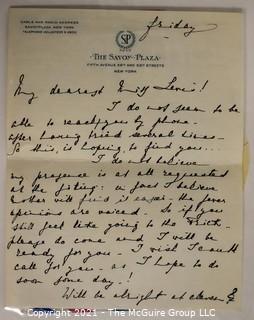 CABLE AND RADIO ADDRESS
SAVOYPLAZA, NEW YORK
TELEPHONE VOLUNTEER 5-2600
Friday
SP
THE SAVOY-PLAZA
FIFTH AVENUE 58TH AND 59TH STREETS
NEW YORK
My dearest Miss Lewis!
I do not seem to be
able to reach you by phone -
after having tried several times -
So this, is hoping, to find you ...
I do not believe
my presence is at all requested
at the fitting: in fact I believe
Mother will find it easier - the fewer
opinions are voiced. So if you
still feel like going to the
please do come and I will be
ready for you - I wish I could
call for you - as I hope to do
soon some day!
Will be alright at eleven
Copyright 2021 - The McGuire Group LLC